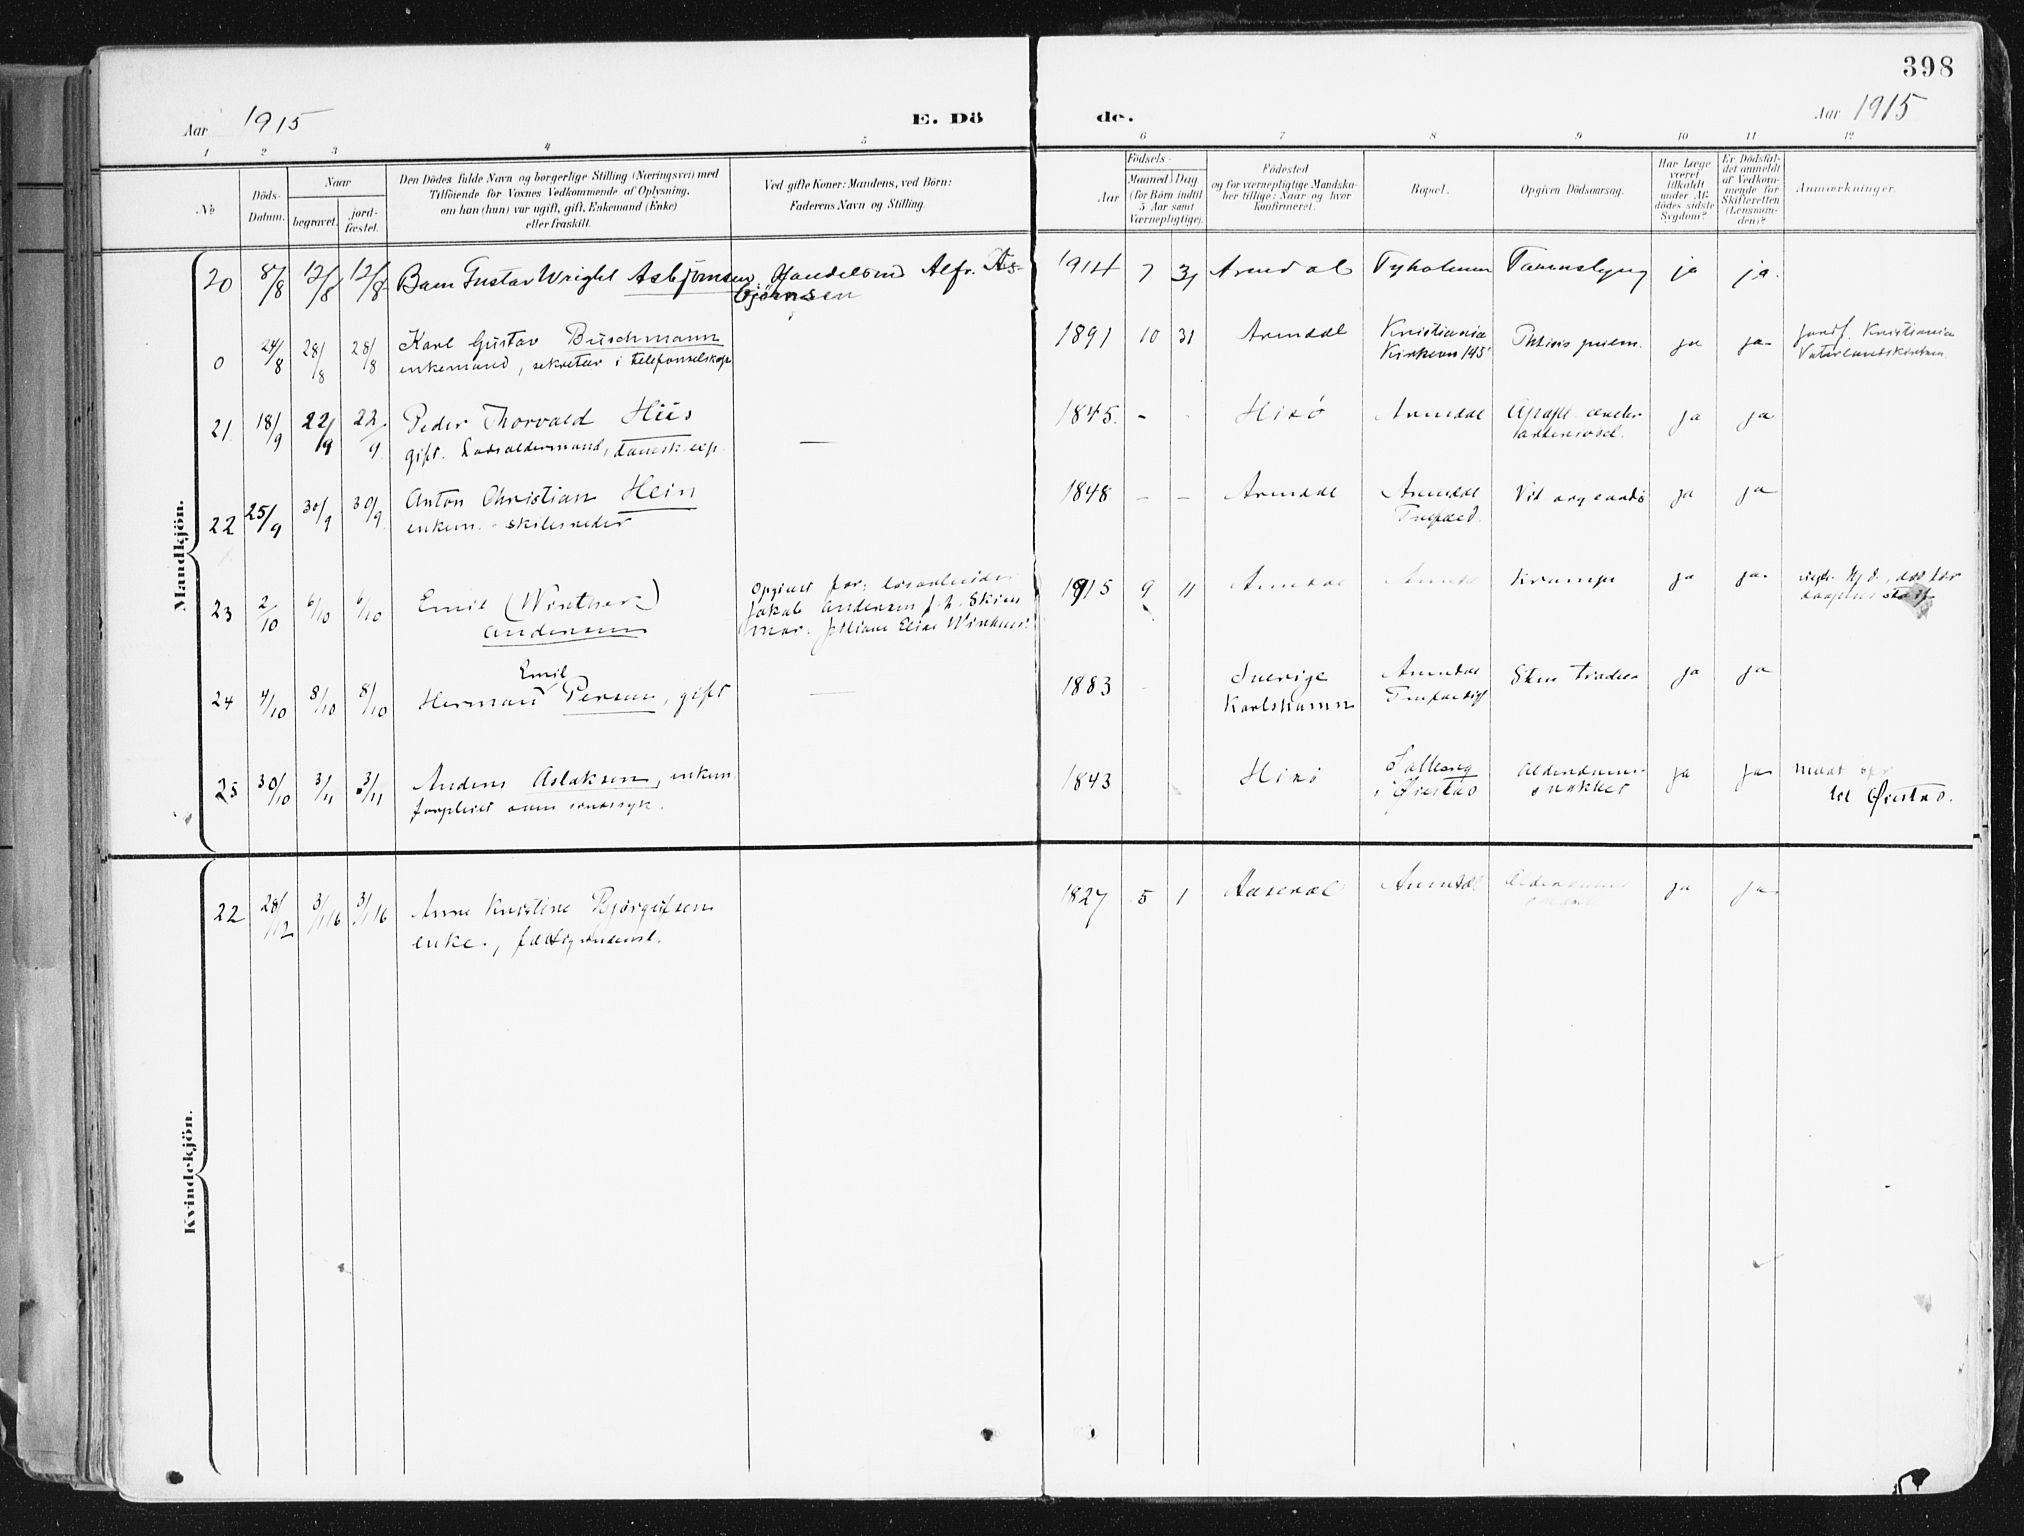 398
Aar 1915
E. Dö
de.
Aar 1915
1 2 3 4 5 6 7 8 9 10 11 12
No
Döds-
Datum.
Naar
begravet.
jord-
fæstet.
Den Dödes fulde Navn og borgerlige Stilling (Næringsvei) med
Tilföiende for Voxnes Vedkommende af Oplysning,
om han (hun) var ugift, gift, Enkemand (Enke)
eller fraskilt.
Ved gifte Koner: Mandens, ved Börn:
Faderens Navn og Stilling.
Födsels-
Aar
Maaned Dag
(for Börn indtil
5 Aar samt
Værnepligtige).
Födested
og for værnepligtige Mandska-
ber tillige: Naar og hvor
konfirmeret.
Bopæl.
Opgiven Dödsaarsag.
Har Læge
været
tilkaldt
under Af-
dödes sidste
Sygdom?
Er Dödsfal-
det anmeldt
af Vedkom-
mende for
Skifteretten
(Lensman-
den)?
Anmærkninger.
Mandkjön.
20 8/8 12/8 12/8 Barn Gustav Wright Asbjørnsen Handelsmd Alfr. As-
bjørnsen
1914 7 31 Arendal Tyholmen ja ja.
0 24/8 28/8 28/8 Karl Gustav Buschmann
enkemand, sekretær i telefonselskap
1891 10 31 Arendal Kristiania
Kirkevn 145 ja ja jordf. Kristiania
21 18/9 22/9 22/9 Peder Thorvald Hiis
gift. Lodsoldermand,
1845. - Hisö Arendal ja ja
22 25/9 30/9 30/9 Anton Christian Hein
enkem. - skibsreder
1848 - - Arendal Arendal ja ja
23 2/10 6/10 6/10 Emil (Winther)
Andersen
Opgivet far: løsarbeider
Jakob Andersen
1915 9 11 Arendal Arendal Krampe ja ja
24 4/10 8/10 8/10 Herman Emil Person, gift
1883 - Sverige
Karlshamn Arendal ja ja
25 30/10 3/11 3/11 Anders Aslaksen, enkem.
forpleiet som sindssyk.
1843 Hisö
i Øiestad Alderdoms-
svækket ja ja
til Øiestad.
Kvindekjön.
22 28/12 3/1 16 3/1 16 Anne Kristine Bjørgulfsen
enke,
1827 5 1 Aaseral Arendal Alderdoms ja ja